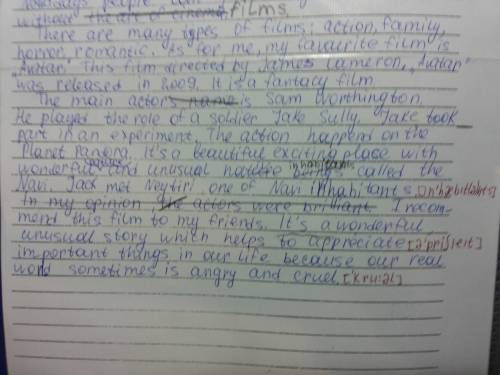 Nowadays people can
without the art of cinema, films.
There are many types of films: action, family,
horror, romantic. As for me, my favourite film is
„Avatar." This film directed by James Cameron. „Avatar"
was released in 2009. It is a fantacy film
The main actors name is Sam Worthington.
He played the role of a soldier Jake Sully. Jake took
part in an experiment. The action happend on the
Planet Pandora. It's a beautiful exciting place with
wonderful and unusual inhabitants called the
Navi. Jack met Neytiri, one of Navi inhabitants
In my opinion the actors were brilliant. I recom-
mend this film to my friends. It's a wonderful
unusual story which helps to appreciate [ə'pri:ʃieit]
important things in our life because our real
world sometimes is angry and cruel. ['kruəl]